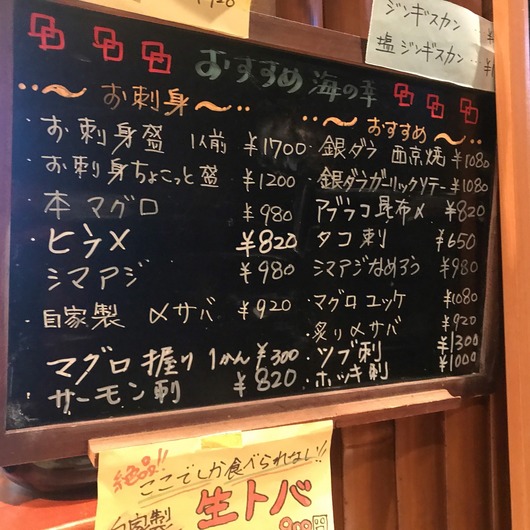 ジンギスカン
塩 ジンギスカン
おすすめ 海の幸
お刺身
お刺身盛 1人前 ¥1700
お刺身ちょこっと盛 ¥1200
本マグロ ¥980
ヒラメ ¥820
シマアジ ¥980
自家製 〆サバ ¥920
マグロ握り 1かん ¥300
サーモン刺 ¥820
おすすめ
銀ダラ 西京焼 ¥1080
銀ダラガーリックソテー ¥1080
アブラコ昆布〆 ¥820
タコ刺 ¥650
シマアジなめろう ¥980
マグロユッケ ¥1080
炙り〆サバ ¥920
ツブ刺 ¥1300
ホッキ刺 ¥1000
絶品!!
ここでしか食べられない!!
自家製 生トバ
900円